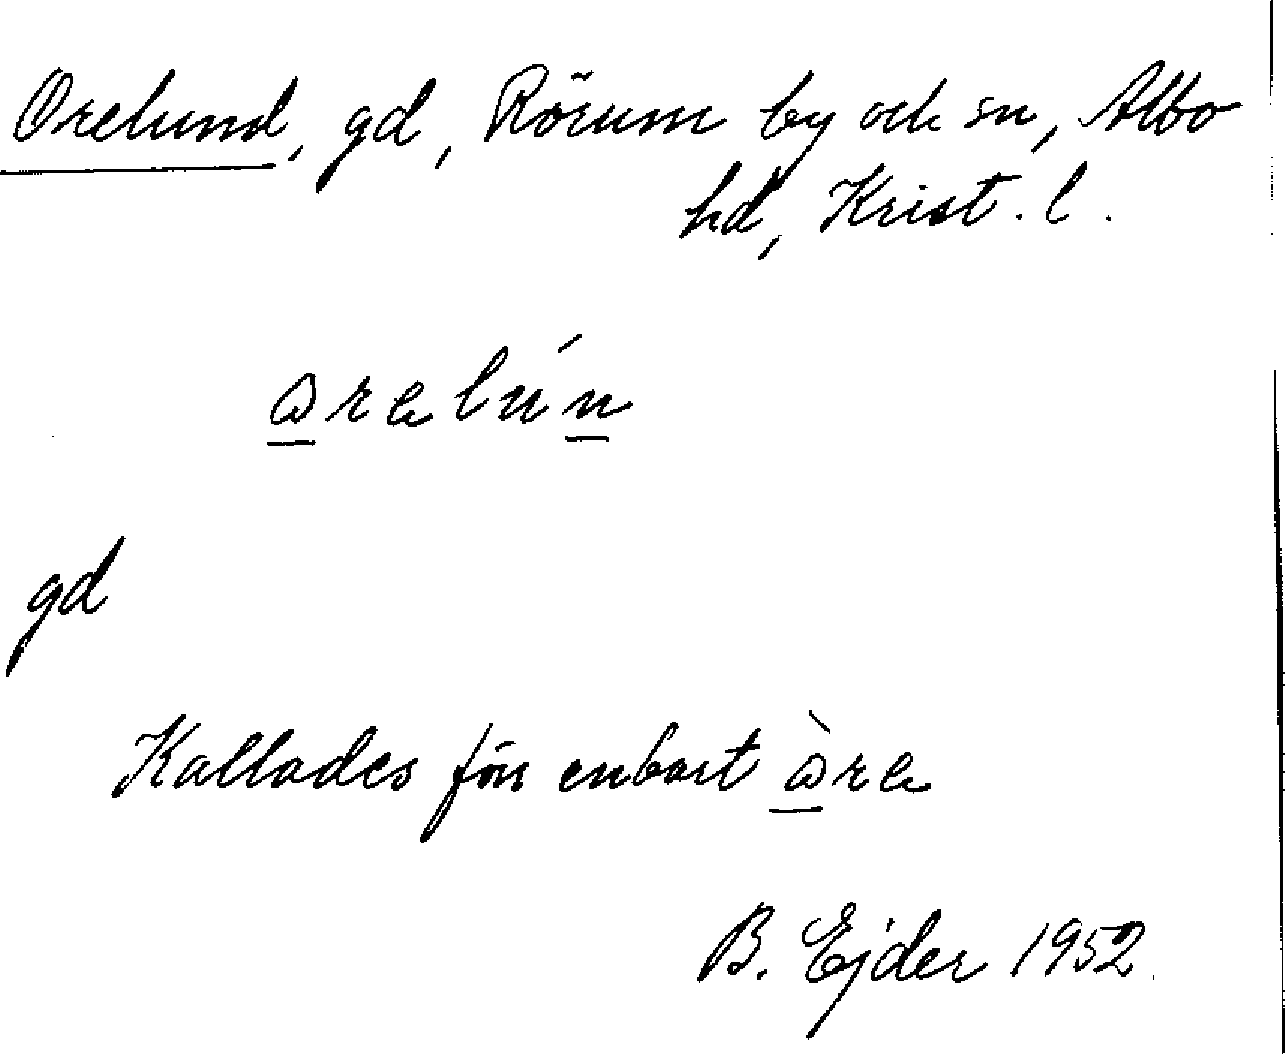 Orelund, gd, Rörum by och sn, Albo
hd, Krist. l.
ɷrelún
gd
Kallades förr enbart ɷ̀re
B. Ejder 1952.